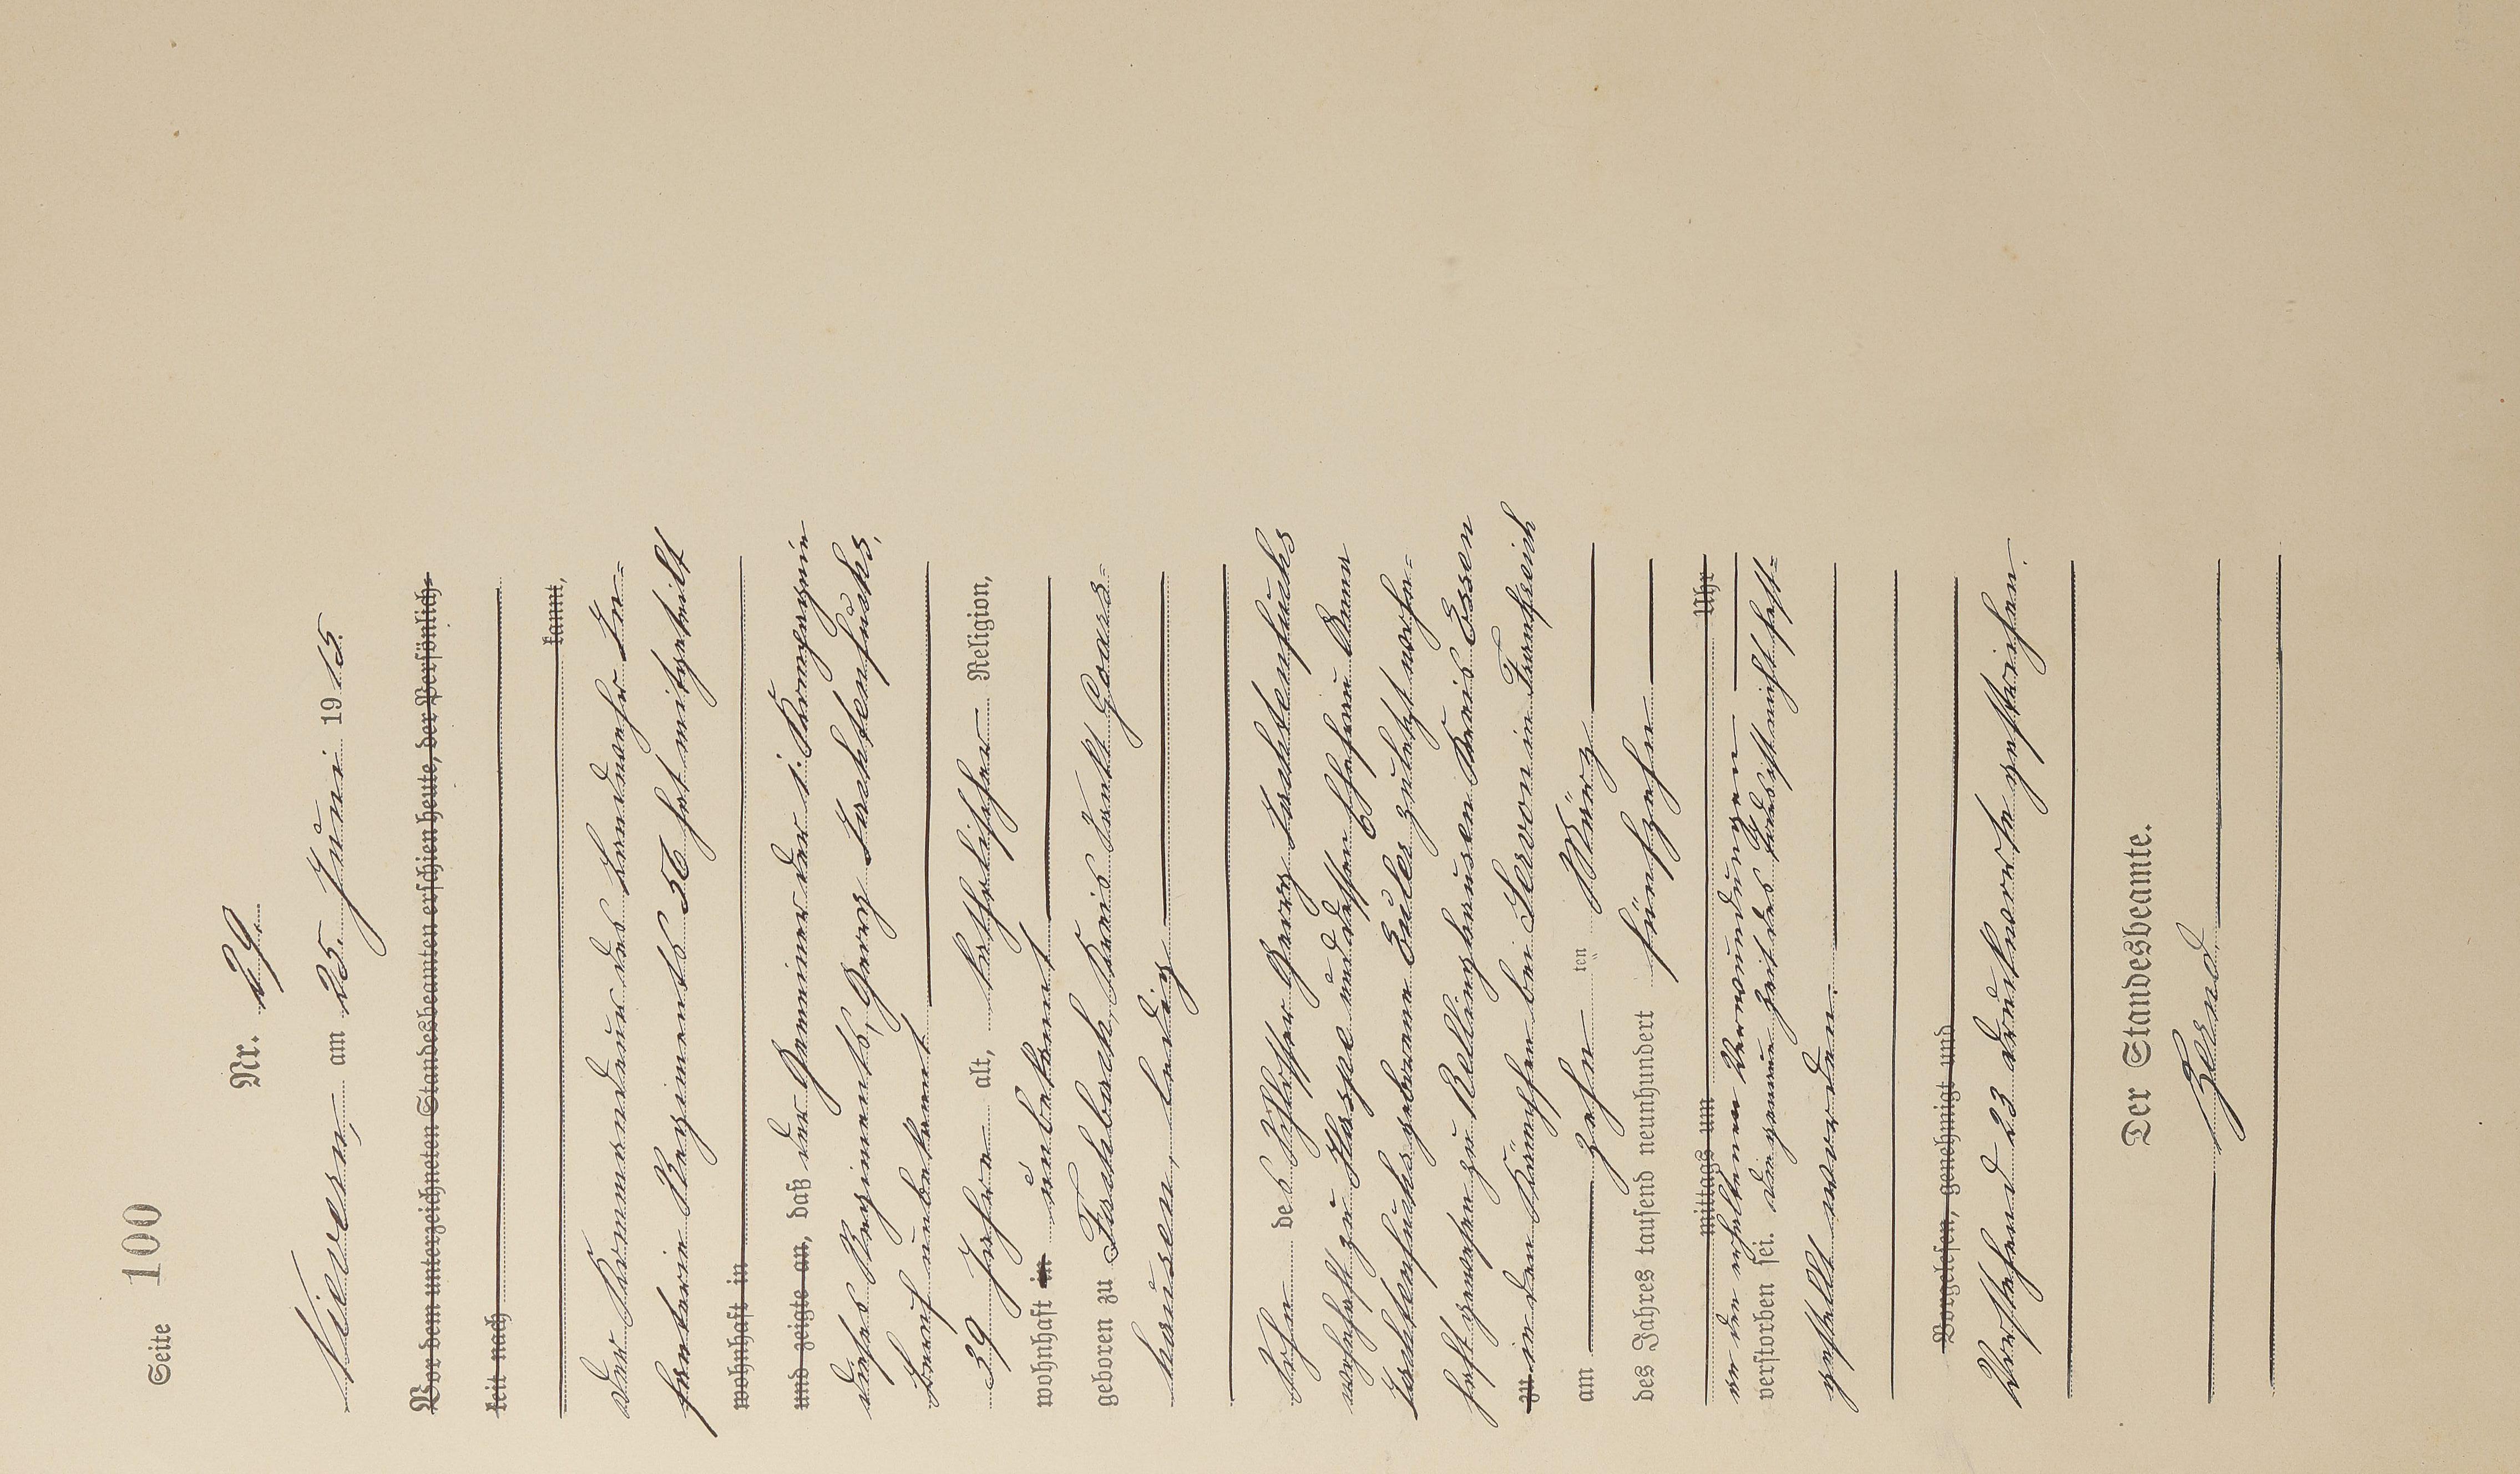 Seite 100
Nr. 29.
Nievern, am 25. Juni 1915.
Vor dem unterzeichneten Standesbeamten erschien heute, der Persönlich-
keit nach
kannt,
Der Kommandeur des Landwehr In-
fanterie Regiments 56 hat mitgeteilt
wohnhaft in
und zeigte an, daß der Gemeiner der 1. Kompagnie
dieses Regiments, Georg Frachtenfuchs,
Beruf unbekannt
39 Jahre alt, katholischer Religion,
wohnhaft in unbekannt
geboren zu Fachbach, Kreis Sankt Goars-
hausen, ledig
Sohn des Schlosser Georg
wohnhaft zu Haspe und dessen Ehefrau Anna
geborene Eules zuletzt wohn-
haft gewesen zu Rellinghausen Kreis Essen
zu in den Kämpfen bei Servon in Frankreich
am zehn ten März
des Jahres tausend neunhundert fünfzehn
mittags um Uhr
an den erhaltenen Verwundungen
verstorben sei. Die genaue Zeit des Todes ist nicht fest-
gestellt worden.
Vorgelesen, genehmigt und
Vorstehend 23 Druckworte gestrichen.
Der Standesbeamte.